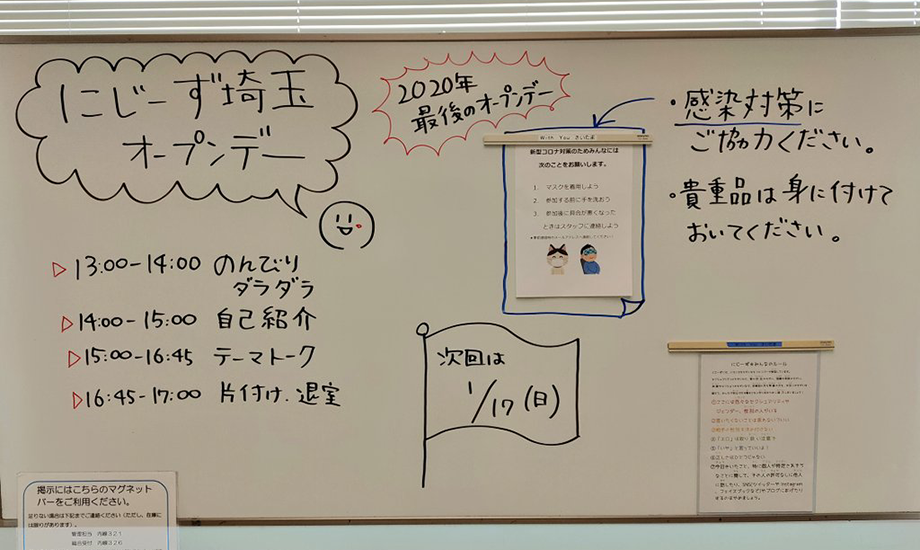 にじーず埼玉
オープンデー
2020年
最後のオープンデー
・感染対策に
ご協力ください。
・貴重品は身に付けて
おいてください。
With You さいたま
新型コロナ対策のためみんなには
次のことをお願いします。
1. マスクを着用しよう
2. 参加する前に手を洗おう
3. 参加後に具合が悪くなった
ときはスタッフに連絡しよう
▷13:00-14:00 のんびり
ダラダラ
▷14:00-15:00 自己紹介
▷15:00-16:45 テーマトーク
▷16:45-17:00 片付け.退室
次回は
1/17(日)
掲示にはこちらのマグネット
バーをご利用ください。
足りない場合は下記までご連絡ください(ただし、在庫に
は限りがあります)。
管理担当 内線321
総合受付 内線326